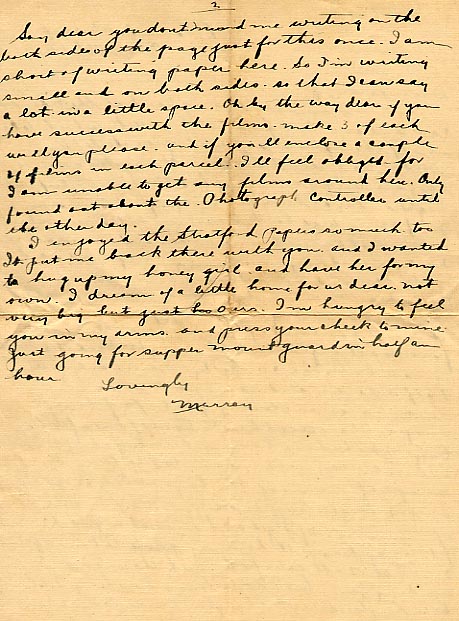 2
Say, dear you dont mind me writing on the
back side of the page just for this once. I am
short of writing paper here. So I'm writing
small and on both sides. so that I can say
a lot in a little space. Oh by the way dear if you
have success with the films. make 3 of each
will you please. and if you'll enclose a couple
of films in each parcel. I'll feel obliged. for
I am unable to get any films around here. Only
found out about the Photograph Controller until
the other day.
I enjoyed the Stratford Papers so much. too
It put me back there with you. and I wanted
to hug up my honey girl. and have her for my
own. I dream of a little home for us dear. not
very big but just Ours. I'm hungry to feel
you in my arms. and press your cheek to mine
Just going for supper mount guard in half an
hour
Lovingly
Murray